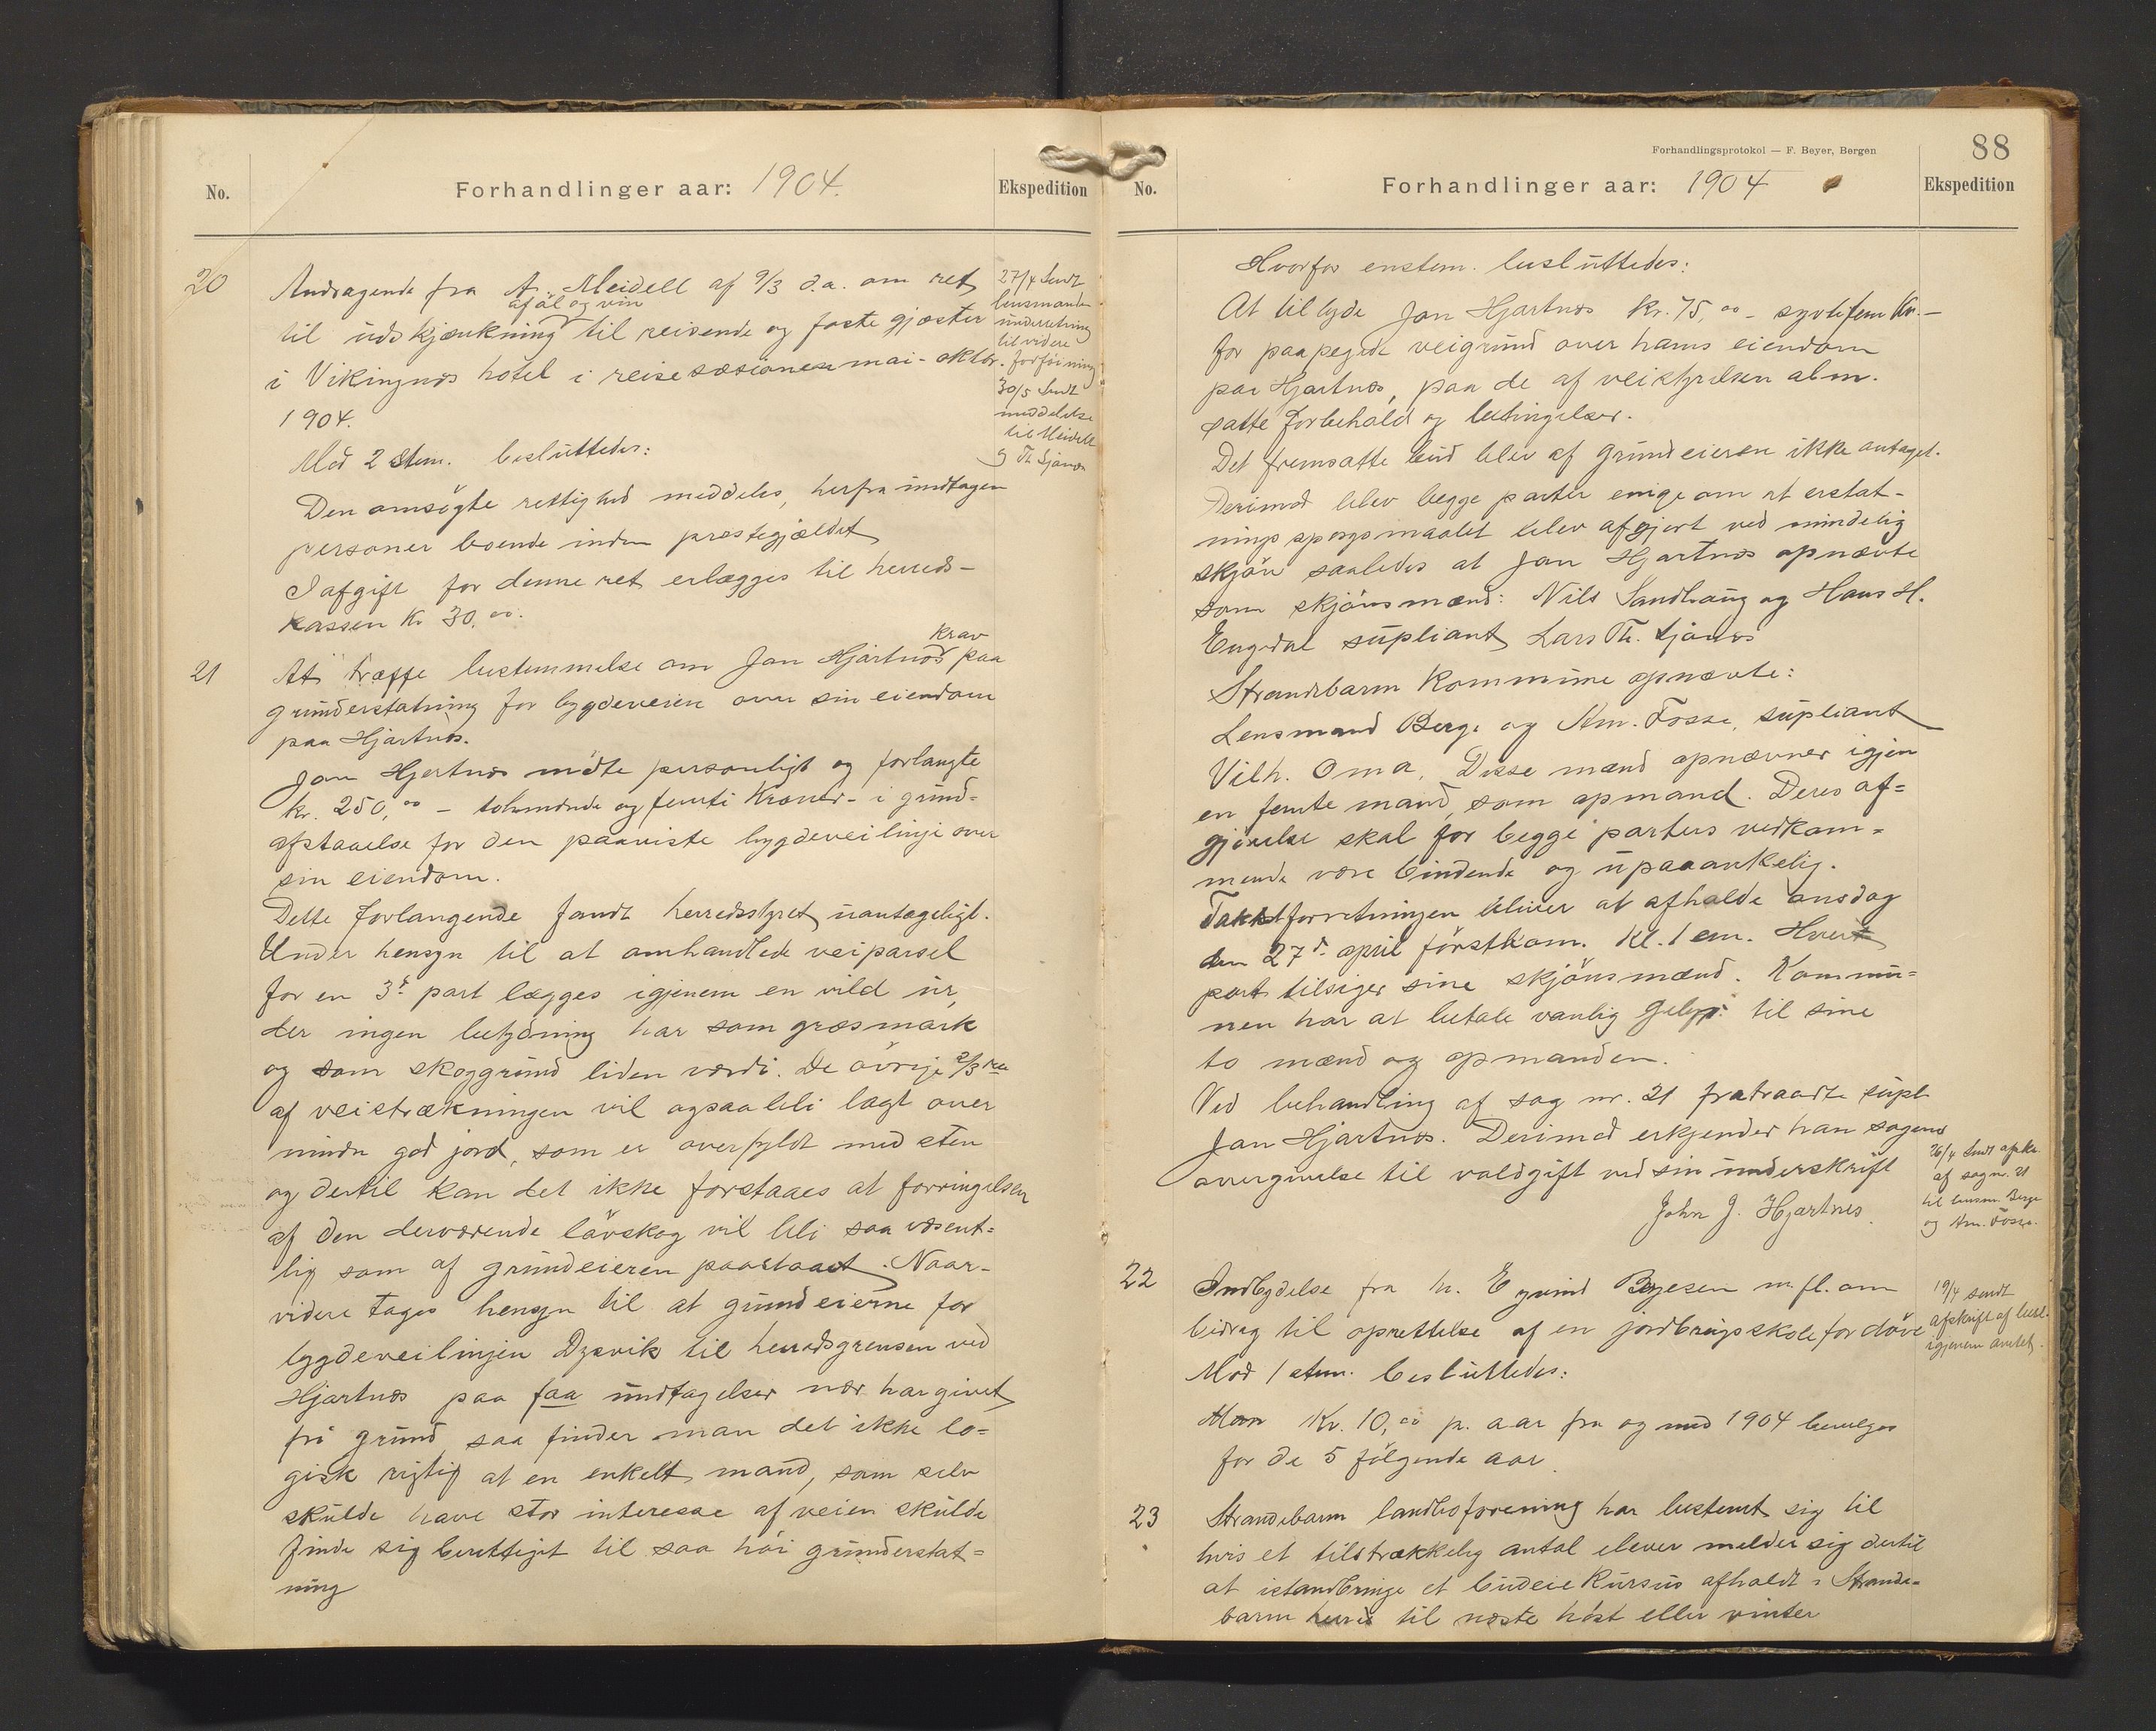 No.
Forhandlinger aar: 1904.
Ekspedition
20
Andragende fra A. Meidell af 9/3 d.a. om ret
af öl og vin
til udskjænkning til reisende og faste gjæster
i Vikingnæs hotel i reisesæsionen mai-oktbr.
1904.
Mod 2 stem. besluttedes:
Den omsögte rettighed meddeles, herfra undtagen
personer boende inden præstegjældet
I afgift for denne ret erlægges til herreds-
kassen Kr 30,00.
27/4 Sendt
lensmanden
underretning
til videre
forföining
30/5 Sendt
meddelelse
til Meidell
og Th. Sjönæs
21
At træffe bestemmelse om Jon Hjartnæs krav paa
grunderstatning for bygdeveien over sin eiendom
paa Hjartnæs.
Jon Hjartnæs mödte personligt og forlangte
kr. 250,00 - tohundrede og femti Kroner - i grund-
afstaaelse for den paaviste bygdeveilinje over
sin eiendom.
Dette forlangende fandt herredsstyret uantageligt.
Under hensyn til at omhandlede veiparsel
for en 3die part lægges igjenem en vild ur,
der ingen betydning har som græsmark
og som skoggrund liden værdi. De övrige 2/3 dele
af veistrækningen vil ogsaa bli lagt over
mindre god jord, som er overfyldt med sten
og dertil kan det ikke forstaaes at forringelsen
af den derværende lövskog vil bli saa væsent-
lig som af grundeieren paastaaet. Naar-
videre tages hensyn til at grundeierne for
bygdeveilinjen Dysvik til herredsgrensen ved
Hjartnæs paa faa undtagelser nær har givet
fri grund, saa finder man det ikke lo-
gisk rigtig at en enkelt mand, som selv
skulde have stor interesse af veien skulde
finde sig berettiget til saa höi grunderstat-
ning
Forhandlingsprotokol — F. Beyer, Bergen
88
No.
Forhandlinger aar: 1904
Ekspedition
Hvorfor enstem. besluttedes:
At tilbyde Jon Hjartnæs kr. 75,00 - syvtifem Kr. -
for paapegede veigrund over hans eiendom
paa Hjartnæs, paa de af veistyrelsen alm.
satte forbehold og betingelser.
Det fremsatte bud blev af grundeieren ikke antaget.
Derimod blev begge parter enige om at erstat-
ningsspörgsmaalet blev afgjort ved mindelig
skjön saaledes at Jon Hjartnæs opnævte
som skjönsmænd: Nils Sandhaug og Hans H.
Engedal supliant Lars Th. Sjönæs
Strandebarm Kommune opnævte:
Lensmand Berge og Am. Fosse, supliant
Vilh. Oma. Disse mænd opnævner igjen
en femte mand, som opmand. Deres af-
gjörelse skal for begge parters vedkom-
mende være bindende og upaaankelig.
Takstforretningen bliver at afholde onsdag
den 27de april förstkom. Kl. 1 em. Hver
part tilsiger sine skjönsmænd. Kommu-
nen har at betale vanlig gebyr til sine
to mænd og opmanden.
Ved behandling af sag nr. 21 fratraadte supl.
Jon Hjartnæs. Derimod erkjender han sagens
overgivelse til voldgift ved sin underskrift
John J. Hjartnes.
26/4 Sendt afskr.
af sag nr. 21
til lensm. Berge
og Am. Fosse.
22
Indbydelse fra hr. Eyvind Boyesen m. fl. om
bidrag til oprettelse af en jordbrugsskole for döve
Mod 1 stem. besluttedes:
Kr. 10,00 pr. aar fra og med 1904 bevilges
for de 5 fölgende aar.
19/4 sendt
afskrift af besl.
igjenem amtet.
23
Strandebarm landboforening har bestemt sig til
hvis et tilstrækkelig antal elever melder sig dertil
at istandbringe et budeiekursus afholdt i Strande-
barm herred til næste höst eller vinter